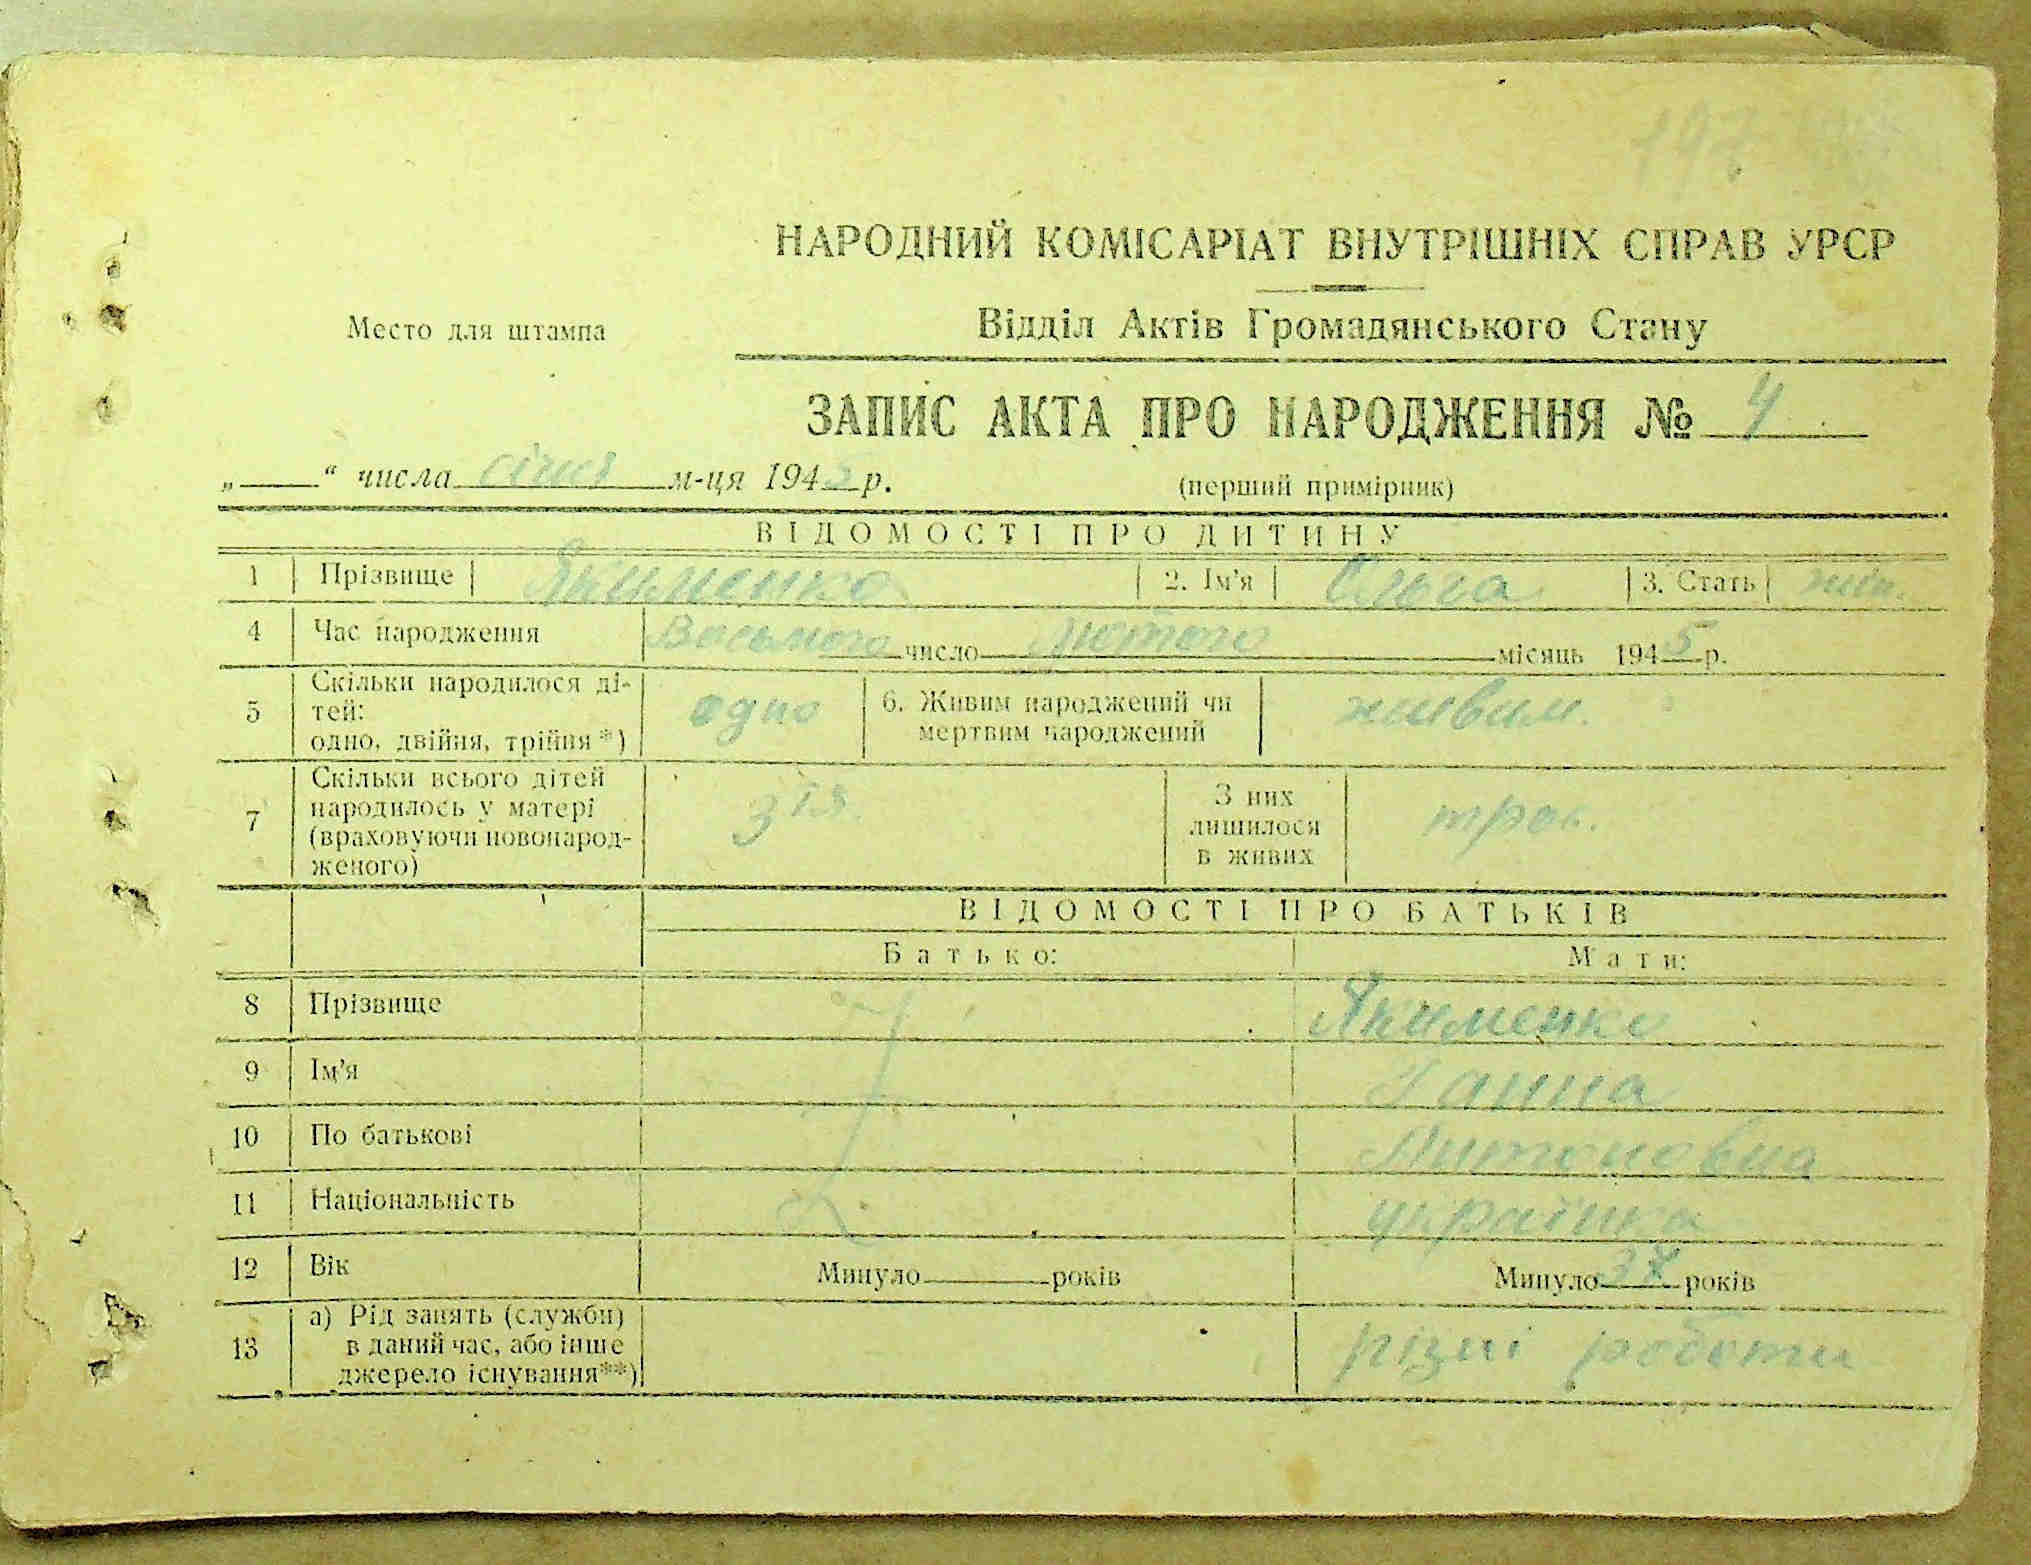 197
НАРОДНИЙ КОМІСАРІАТ ВНУТРІШНІХ СПРАВ УРСР
Место для штампа
Відділ Актів Громадянського Стану
ЗАПИС АКТА ПРО НАРОДЖЕННЯ № 4
„ “ числа січня м-ця 1945 р.
(перший примірник)
ВІДОМОСТІ ПРО ДИТИНУ
1 Прізвище Якименко 2. Ім'я Ольга 3. Стать жін.
4 Час народження Восьмого число лютого місяць 1945 р.
5 Скільки народилося ді-
тей:
одно, двійня, трійня*) одно
6. Живим народжений чи
мертвим народжений живим.
7 Скільки всього дітей
народилось у матері
(враховуючи новонарод-
женого) 3
З них
лишилося
в живих троє.
ВІДОМОСТІ ПРО БАТЬКІВ
Батько: Мати:
8 Прізвище Якименко
9 Ім'я Ганна
10 По батькові Антоновна
11 Національність українка
12 Вік Минуло років Минуло 37 років
13 а) Рід занять (служби)
в даний час, або інше
джерело існування**) різні роботи